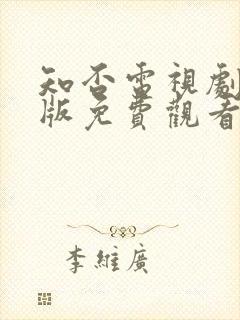 知否電視劇
版免費觀看
李維廣